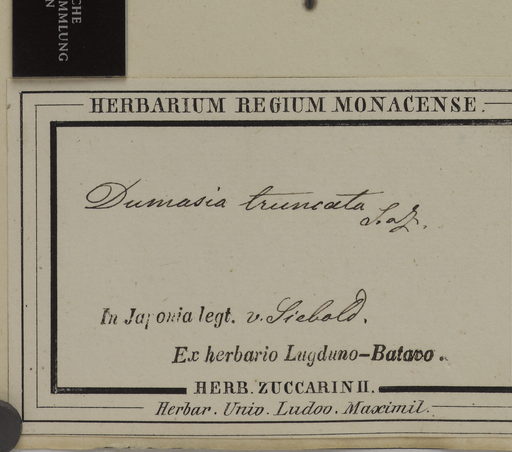 CHE
MMLUNG
N
HERBARIUM REGIUM MONACENSE.
Dumasia truncata S. a Z.
In Japonia legt. v. Siebold.
Ex herbario Lugduno-Batavo.
HERB. ZUCCARINII.
Herbar. Univ. Ludov. Maximil.